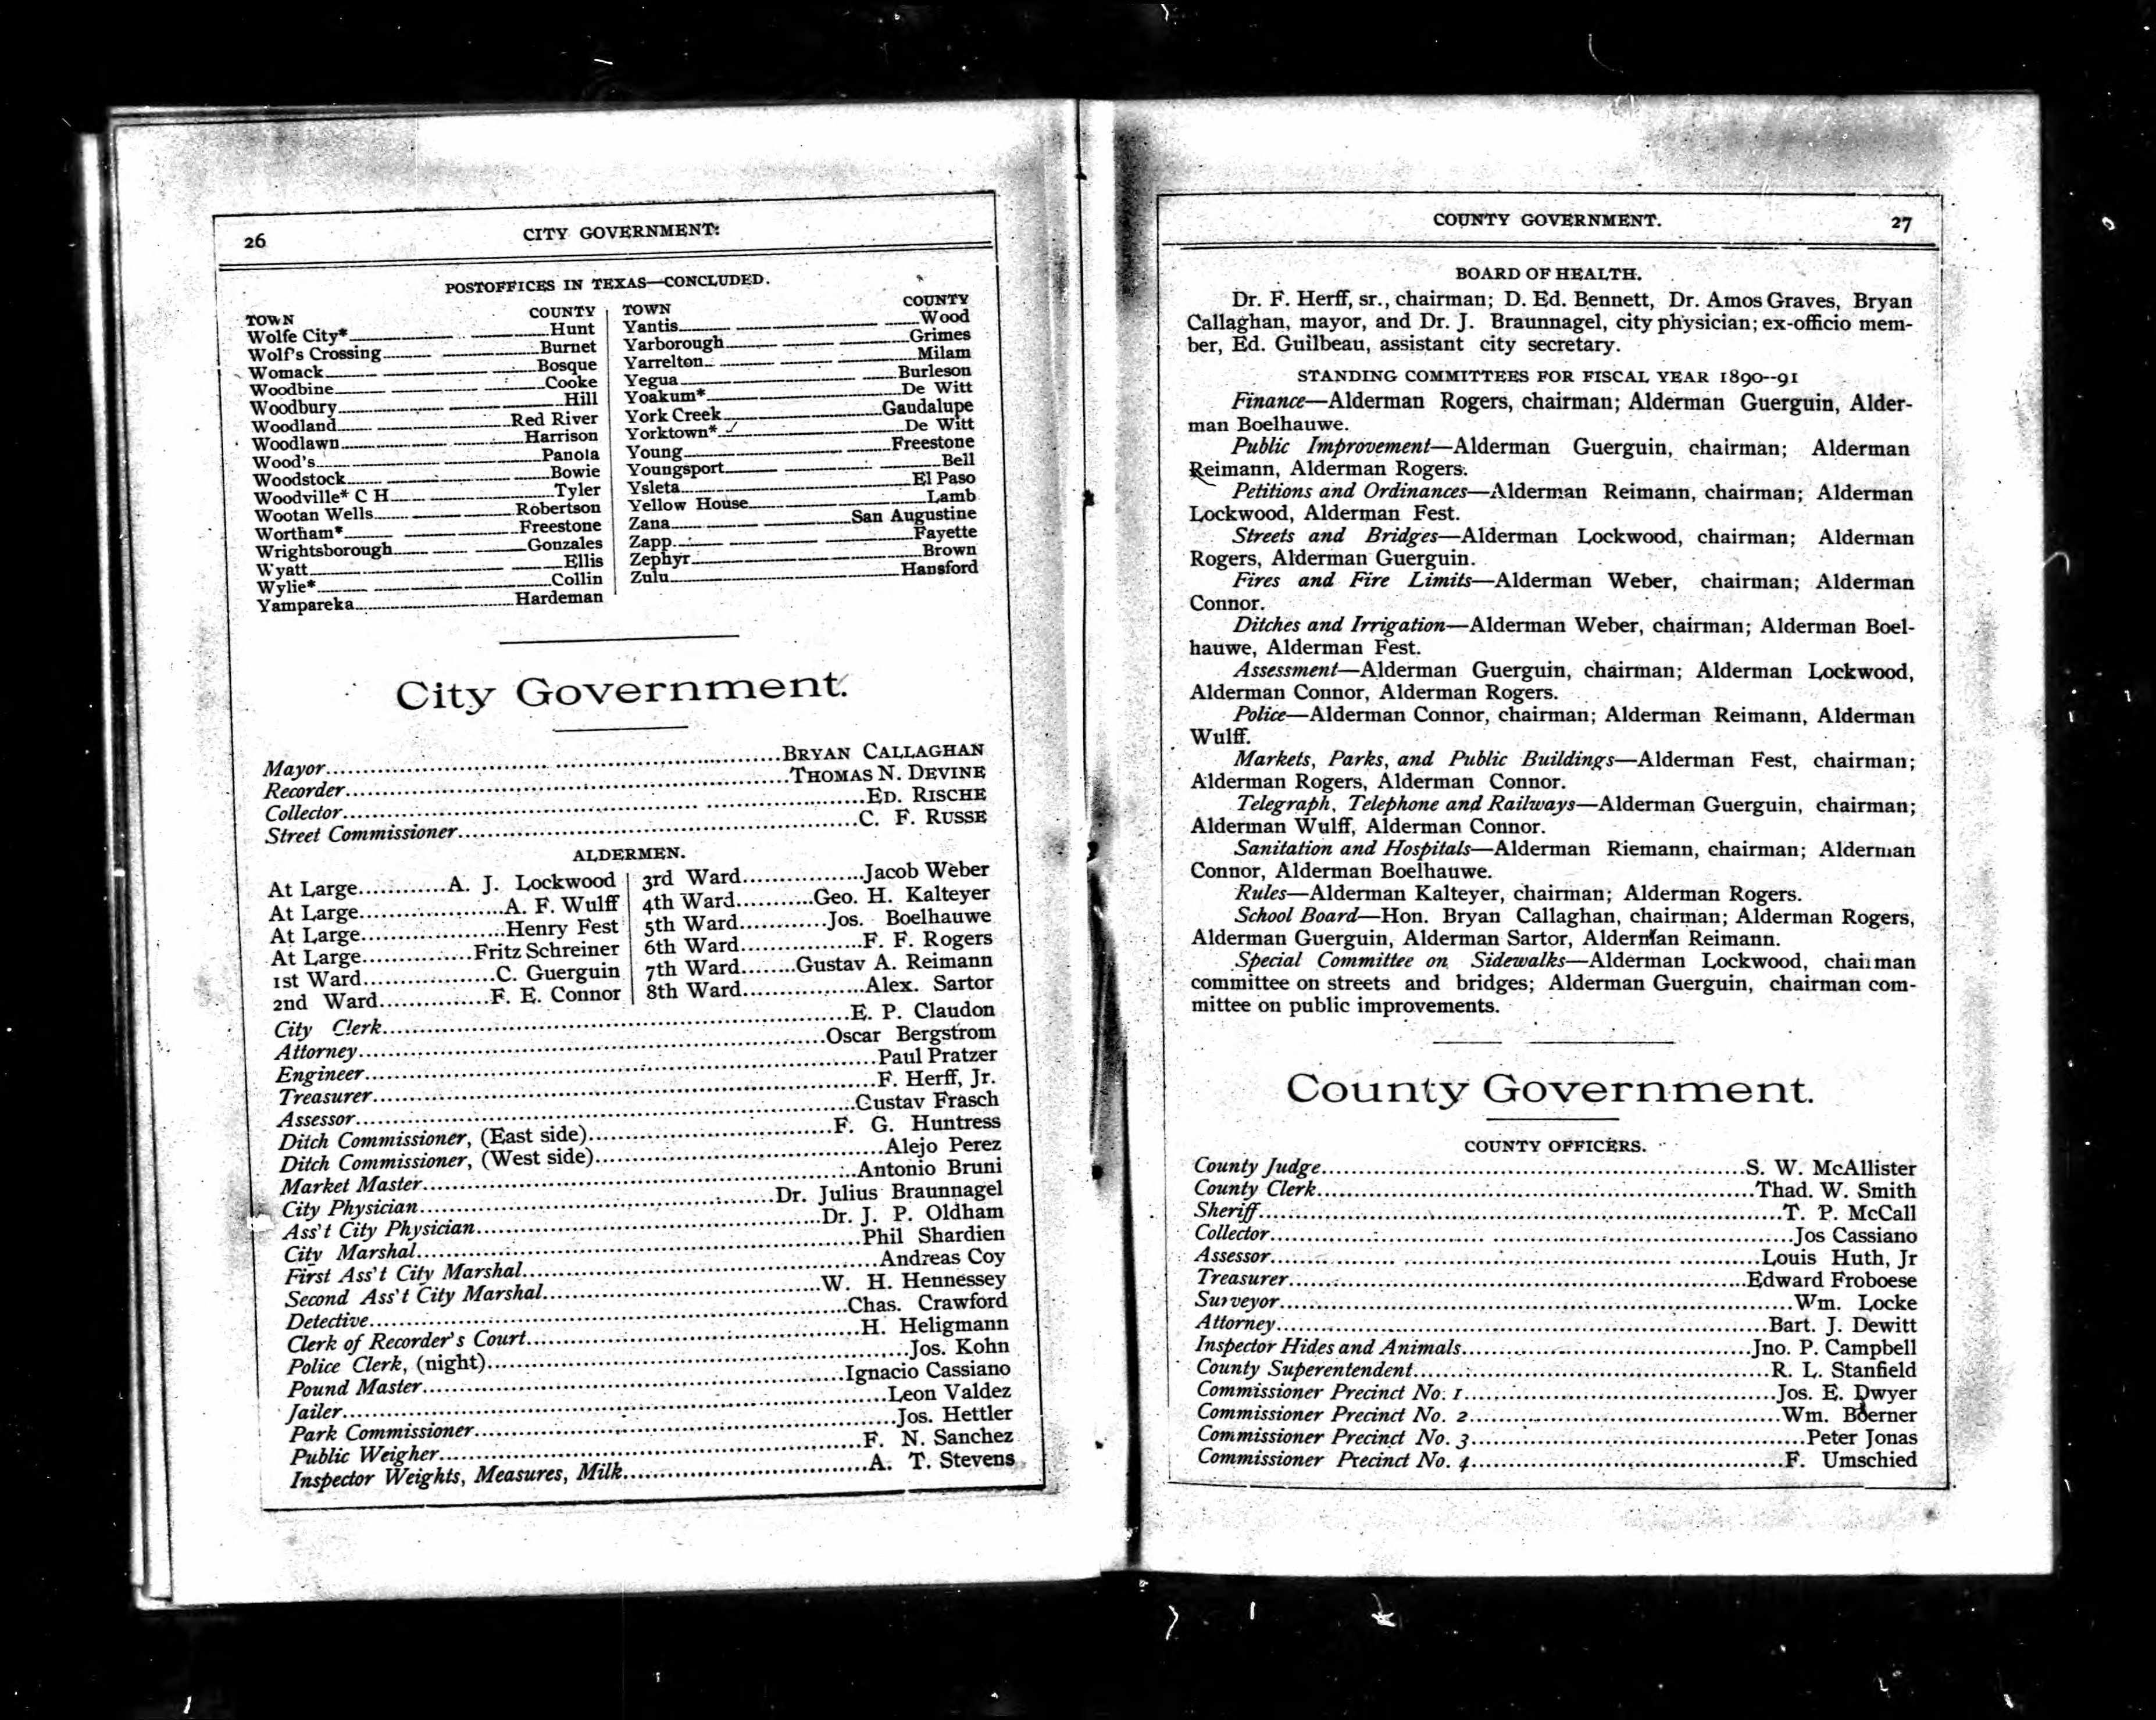 26
CITY GOVERNMENT.
POSTOFFICES IN TEXAS—CONCLUDED.
TOWN COUNTY
Wolfe City* Hunt
Wolf's Crossing Burnet
Womack Bosque
Woodbine Cooke
Woodbury Hill
Woodland Red River
Woodlawn Harrison
Wood's Panola
Woodstock Bowie
Woodville* C H Tyler
Wootan Wells Robertson
Wortham* Freestone
Wrightsborough Gonzales
Wyatt Ellis
Wylie* Collin
Yampareka Hardeman
TOWN COUNTY
Yantis Wood
Yarborough Grimes
Yarrelton Milam
Yegua Burleson
Yoakum* De Witt
York Creek Gaudalupe
Yorktown* De Witt
Young Freestone
Youngsport Bell
Ysleta El Paso
Yellow House Lamb
Zana San Augustine
Zapp Fayette
Zephyr Brown
Zulu Hansford
City Government.
Mayor BRYAN CALLAGHAN
Recorder THOMAS N. DEVINE
Collector ED. RISCHE
Street Commissioner C. F. RUSSE
ALDERMEN.
At Large A. J. Lockwood
At Large A. F. Wulff
At Large Henry Fest
At Large Fritz Schreiner
1st Ward C. Guerguin
2nd Ward F. E. Connor
3rd Ward Jacob Weber
4th Ward Geo. H. Kalteyer
5th Ward Jos. Boelhauwe
6th Ward F. F. Rogers
7th Ward Gustav A. Reimann
8th Ward Alex. Sartor
City Clerk E. P. Claudon
Attorney Oscar Bergstrom
Engineer Paul Pratzer
Treasurer F. Herff, Jr.
Assessor Gustav Frasch
Ditch Commissioner, (East side) F. G. Huntress
Ditch Commissioner, (West side) Alejo Perez
Market Master Antonio Bruni
City Physician Dr. Julius Braunnagel
Ass't City Physician Dr. J. P. Oldham
City Marshal Phil Shardien
First Ass't City Marshal Andreas Coy
Second Ass't City Marshal W. H. Hennessey
Detective Chas. Crawford
Clerk of Recorder's Court H. Heligmann
Police Clerk, (night) Jos. Kohn
Pound Master Ignacio Cassiano
Jailer Leon Valdez
Park Commissioner Jos. Hettler
Public Weigher F. N. Sanchez
Inspector Weights, Measures, Milk A. T. Stevens
COUNTY GOVERNMENT.
27
BOARD OF HEALTH.
Dr. F. Herff, sr., chairman; D. Ed. Bennett, Dr. Amos Graves, Bryan
Callaghan, mayor, and Dr. J. Braunnagel, city physician; ex-officio mem-
ber, Ed. Guilbeau, assistant city secretary.
STANDING COMMITTEES FOR FISCAL YEAR 1890--91
Finance—Alderman Rogers, chairman; Alderman Guerguin, Alder-
man Boelhauwe.
Public Improvement—Alderman Guerguin, chairman; Alderman
Reimann, Alderman Rogers.
Petitions and Ordinances—Alderman Reimann, chairman; Alderman
Lockwood, Alderman Fest.
Streets and Bridges—Alderman Lockwood, chairman; Alderman
Rogers, Alderman Guerguin.
Fires and Fire Limits—Alderman Weber, chairman; Alderman
Connor.
Ditches and Irrigation—Alderman Weber, chairman; Alderman Boel-
hauwe, Alderman Fest.
Assessment—Alderman Guerguin, chairman; Alderman Lockwood,
Alderman Connor, Alderman Rogers.
Police—Alderman Connor, chairman; Alderman Reimann, Alderman
Wulff.
Markets, Parks, and Public Buildings—Alderman Fest, chairman;
Alderman Rogers, Alderman Connor.
Telegraph, Telephone and Railways—Alderman Guerguin, chairman;
Alderman Wulff, Alderman Connor.
Sanitation and Hospitals—Alderman Riemann, chairman; Alderman
Connor, Alderman Boelhauwe.
Rules—Alderman Kalteyer, chairman; Alderman Rogers.
School Board—Hon. Bryan Callaghan, chairman; Alderman Rogers,
Alderman Guerguin, Alderman Sartor, Alderman Reimann.
Special Committee on Sidewalks—Alderman Lockwood, chairman
committee on streets and bridges; Alderman Guerguin, chairman com-
mittee on public improvements.
County Government.
COUNTY OFFICERS.
County Judge S. W. McAllister
County Clerk Thad. W. Smith
Sheriff T. P. McCall
Collector Jos Cassiano
Assessor Louis Huth, Jr
Treasurer Edward Froboese
Surveyor Wm. Locke
Attorney Bart. J. Dewitt
Inspector Hides and Animals Jno. P. Campbell
County Superentendent R. L. Stanfield
Commissioner Precinct No. 1 Jos. E. Dwyer
Commissioner Precinct No. 2 Wm. Boerner
Commissioner Precinct No. 3 Peter Jonas
Commissioner Precinct No. 4 F. Umschied